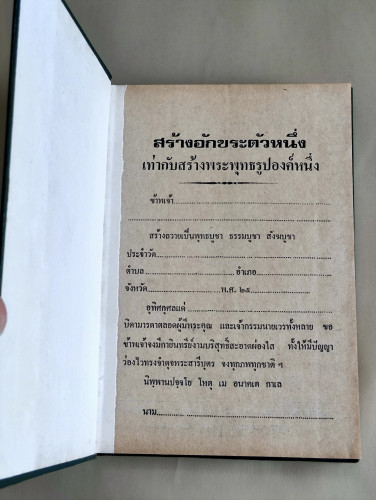 สร้างอักขระตัวหนึ่ง
เท่ากับสร้างพระพุทธรูปองค์หนึ่ง
ข้าพเจ้า
สร้างถวายเป็นพุทธบูชา ธรรมบูชา สังฆบูชา
ประจำวัด
ตำบล อำเภอ
จังหวัด พ.ศ. ๒๕
อุทิศกุศลแด่
บิดามารดาตลอดผู้มีพระคุณ และเจ้ากรรมนายเวรทั้งหลาย ขอ
ข้าพเจ้าจงมีกายินทรีย์งามบริสุทธิ์สะอาดผ่องใส ทั้งให้มีปัญญา
ว่องไวทรงจำดุจพระสารีบุตร จงทุกภพทุกชาติ ฯ
นิพฺพานปจฺจโย โหตุ เม อนาคเต กาเล
นาม